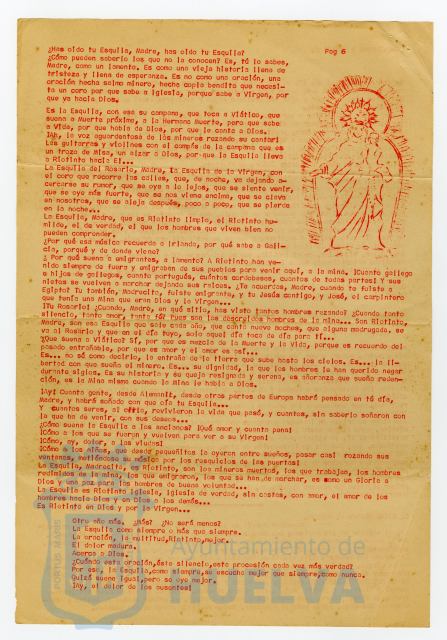 ¿Has oido tu Esquila, Madre, has oido tu Esquila?
Pag 6
¿Cómo pueden saberlo los que no la conocen? Es, tú lo sabes,
Madre, como un lamento. Es como una vieja historia llena de
tristeza y llena de esperanza. Es no como una oración, una
oración hecha salmo minero, hecha copla bendita que necesi-
ta un coro por que sabe a Iglesia, porque sabe a Virgen, por
que va hacia Dios.
Es la Esquila, con esa su campana, que toca a Viático, que
suena a Muerte próxima, a la Hermana Muerte, pero que sabe
a Vida, por que habla de Dios, por que le canta a Dios.
¡Ah, la voz aguardentosa de los mineros rozando su cantar!
Las guitarras y violines con el compás de la campana que es
un trozo de Misa, un alzar a Dios, por que la Esquila lleva
a Riotinto hacia El...
La Esquila del Rosario, Madre, la Esquila de la Virgen, con
el coro que recorre las calles, que, de noche, va dejando a-
cercarse su rumor, que se oye a lo lejos, que se siente venir,
que se oye más fuerte, que se nos viene encima, que se clava
en nosotros, que se aleja después, poco a poco, que se pierde
en la noche...
La Esquila, Madre, que es Riotinto limpio, el Riotinto hu-
milde, el de verdad, el que los hombres que viven bien no
pueden comprender.
¿Por qué esa música recuerda a Irlanda, por qué sabe a Gali-
cia, porqué y de donde viene?
¿ Por qué suena a emigrantes, a lamento? A Riotinto han ve-
nido siempre de fuera y emigraban de sus pueblos para venir aquí, a la mina. ¡Cuanto gallego
e hijos de gallegos, cuanto portugués, cuántos cordobeses, cuantos de todas partes! Y sus
nietos se vuelven a marchar dejando sus raices. ¿Te acuerdas, Madre, cuando te fuiste a
Egipto? Tu también, Madrecita, fuiste emigrante, y tu Jesús contigo, y José, el carpintero
que tenía una Mina que eran Dios y la Virgen...
¡Tu Rosario! ¿Cuando, Madre, en qué sitio, has visto tantos hombres rezando? ¿Cuando tanto
silencio, tanto amor, tanta fé? Pues son los descreidos hombres de la mina... Son Riotinto,
Madre, son esa Esquila que sale cada año, que canta nueve noches, que alguna madrugada, se
va al Rosario y que en el día tuyo, solo aquel día toca de día para Ti...
¿Que suena a Viático? Si, por que es mezcla de la Muerte y la Vida, porque es recuerdo del
pasado entrañable, por que es amor y el amor es así...
Es... no sé como decirlo, la entraña de la tierra que sube hasta los cielos. Es... la li-
bertad con que sueña el minero. Es... su dignidad, la que los hombres le han querido negar
durante siglos. Es su historia y su queja resignada y serena, es añoranza que sueña reden-
ción, es la Mina misma cuando la Mina le habla a Dios.
¡Ay! Cuanta gente, desde Alemania, desde otras partes de Europa habrá pensado en tú día,
Madre, y habrá soñado con que oía tu Esquila...
Y cuantos seres, al oirla, revivieron la vida que pasó, y cuantos, sin saberlo soñaron con
la que ha de venir, con sus deseos...
¿Cómo suena la Esquila a los ancianos! ¡Qué amor y cuanta pena!
¡Cómo a los que se fueron y vuelven para ver a su Virgen!
¡Cómo, ay, dolor, a las viudas!
¡Cómo a los niños, que desde pequeñitos la oyeron entre sueños, pasar casi rozando sus
ventanas, metiéndose su música por los resquicios de las puertas!
La Esquila, Madrecita, es Riotinto, son los mineros muertos, los que trabajan, los hombres
redimidos de la mina, los que emigraron, los que se han de marchar, es como un Gloria a
Dios y una paz para los hombres de buena voluntad...
La Esquila es Riotinto Iglesia, Iglesia de verdad, sin costes, con amor, el amor de los
hombres hacia Dios y en Dios a los demás...
Es Riotinto en Dios y por la Virgen...
Otro año más. ¿Más? ¿No será menos?
La Esquila como siempre o más que siempre.
La oración, la multitud, Riotinto, mejor.
El dolor madura.
Acerca a Dios.
¿Cuándo esta oración, éste silencio, esta procesión cada vez más verdad?
Por eso, la Esquila, como siempre, se escucha mejor que siempre, como nunca.
Quizá suene igual, pero se oye mejor.
¡Ay, el dolor de los ausentes!
PORTUS MARIS
Ayuntamiento de
HUELVA